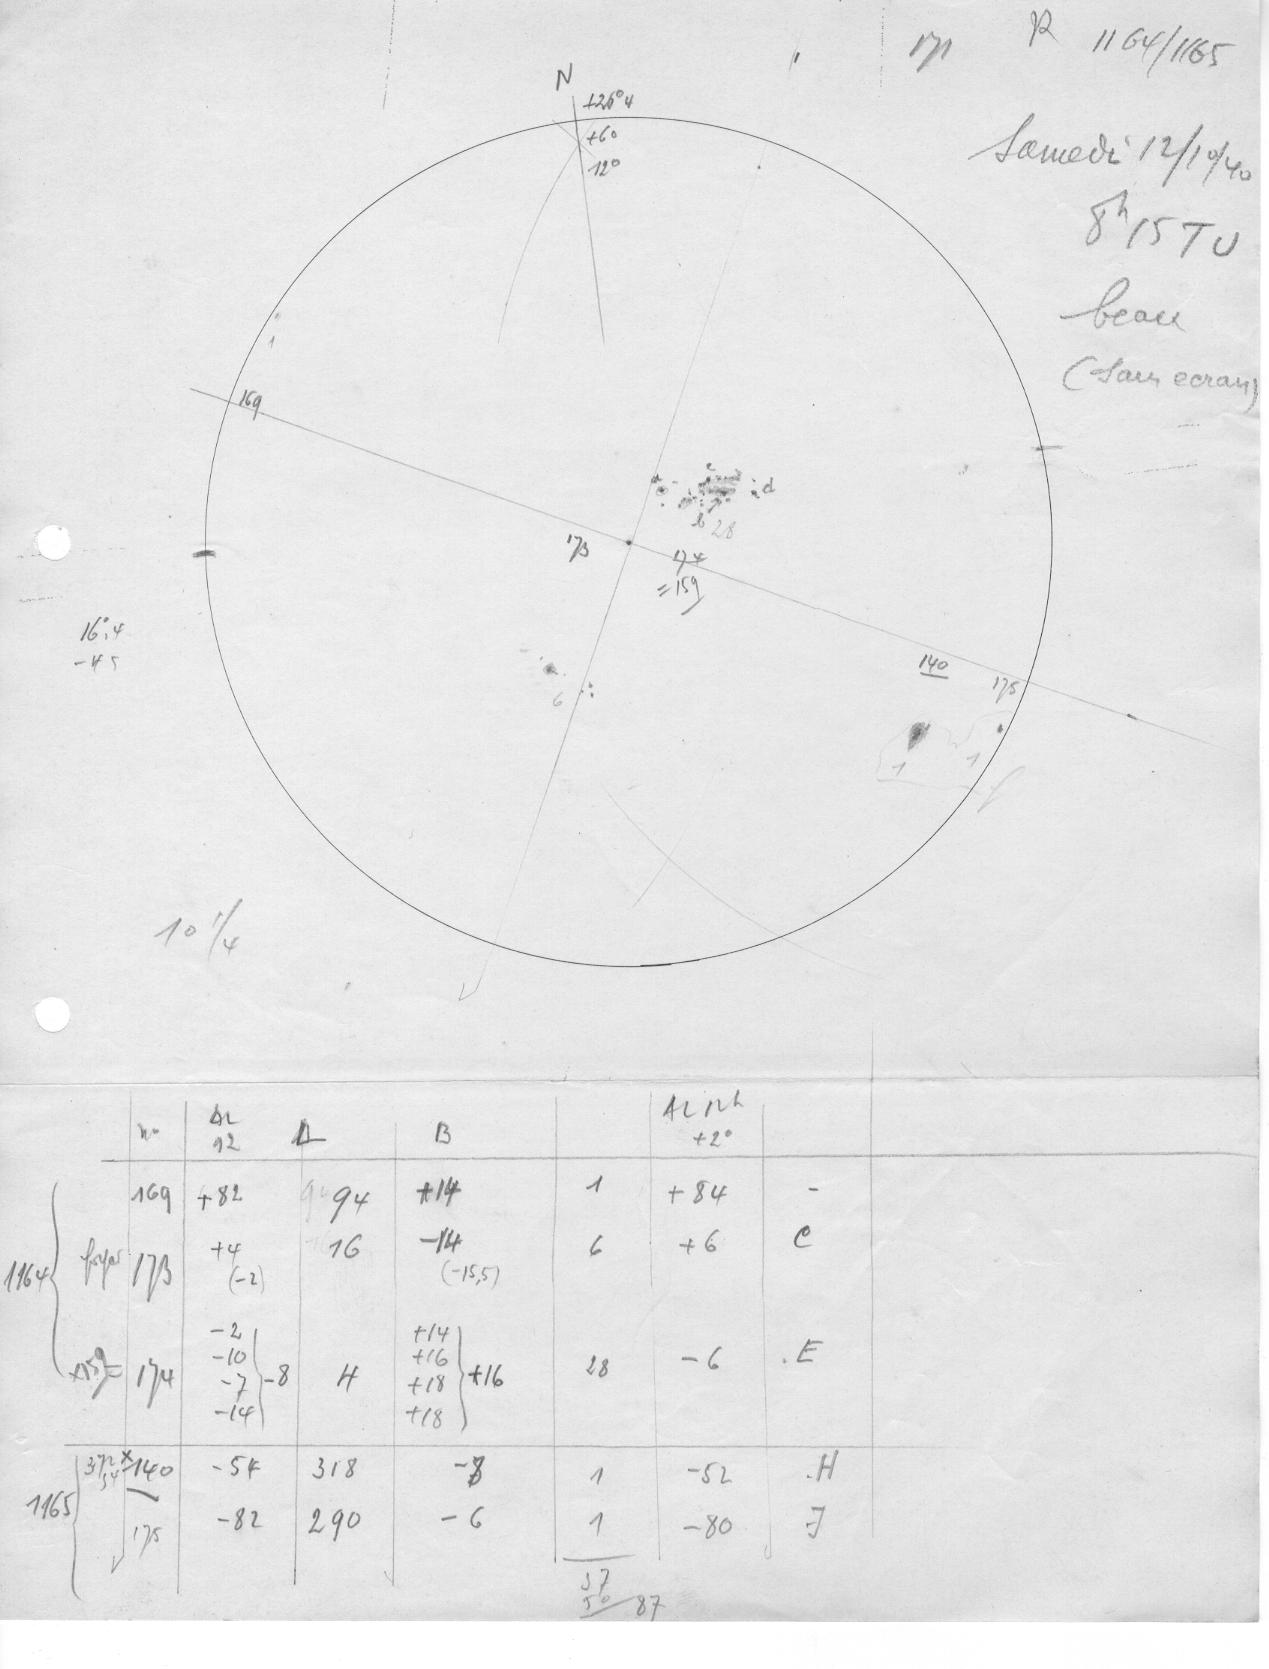 171 R 1164/1165
Samedi 12/10/40
8h 15 TU
beau
(sans ecran)
N
+26°4
+6°
12°
1
169
c
d
b 28
173
174
=159
16°,4
6
140
175
1 1
10 1/4
no
L
B
+2°
169 +82 94 +14 1 +84 -
1164
173 +4 16 -14 6 +6 C
(-2) (-15,5)
-2 +14
-10 +16
174 -7 -8 4 +18 +16 28 -6 .E
-14 +18
1165
140 -54 318 -8 1 -52 .H
175 -82 290 -6 1 -80 J
37
50 87